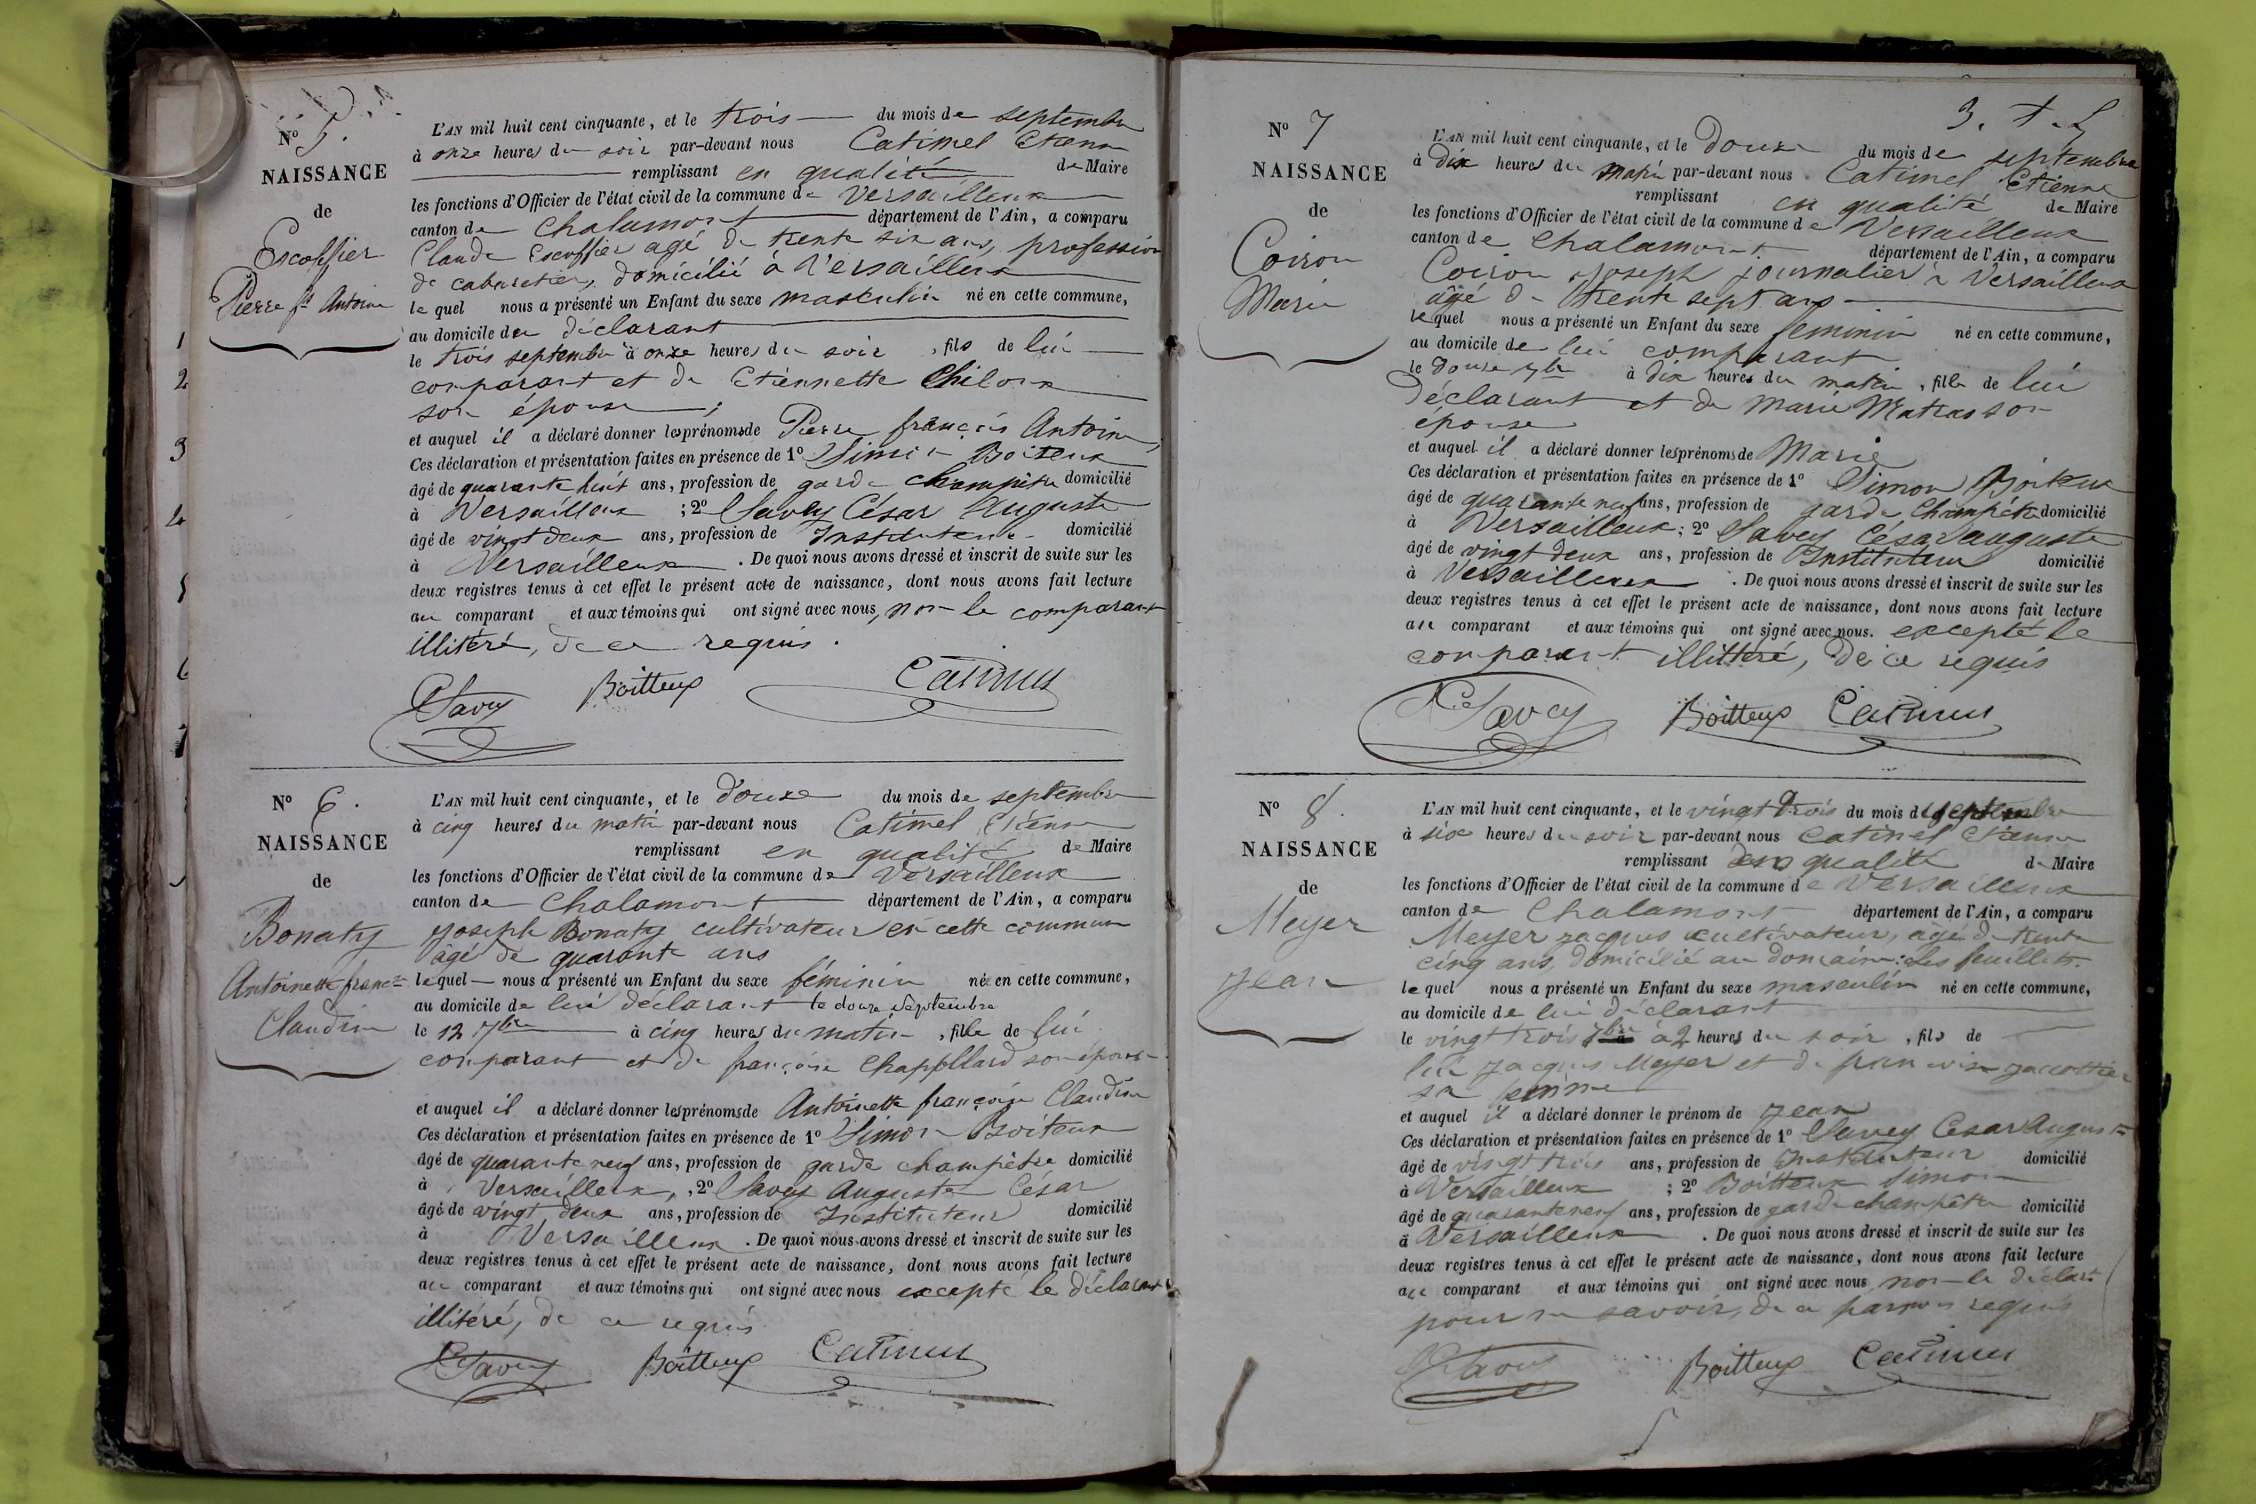 N° 5.
NAISSANCE
de
Escoffier
Pierre fs Antoine
L'AN mil huit cent cinquante, et le trois du mois de septembre
à onze heures du soir par-devant nous Catimel Etienne
remplissant en qualité de Maire
les fonctions d'Officier de l'état civil de la commune de Versailleux
canton de Chalamont département de l'Ain, a comparu
Claude Escoffier agé de trente six ans, profession
de cabaretier, domicilié à Versailleux
le quel nous a présenté un Enfant du sexe masculin né en cette commune,
au domicile du déclarant
le trois septembre à onze heures du soir, fils de lui
comparant et de Etiennette
son épouse;
et auquel il a déclaré donner les prénoms de Pierre françois Antoine,
Ces déclaration et présentation faites en présence de 1° Simon Boiteux
âgé de quarante huit ans, profession de garde champêtre domicilié
à Versailleux; 2° Savey César Auguste
âgé de vingt deux ans, profession de Instituteur domicilié
à Versailleux. De quoi nous avons dressé et inscrit de suite sur les
deux registres tenus à cet effet le présent acte de naissance, dont nous avons fait lecture
au comparant et aux témoins qui ont signé avec nous, non le comparant
illitéré, de ce requis.
CSavey Boitteux Catimel
1
2
3
4
5
6
7
N° 6.
NAISSANCE
de
Bonaty
Antoinette franc
Claudine
L'AN mil huit cent cinquante, et le douze du mois de septembre
à cinq heures du matin par-devant nous Catimel Etienne
remplissant en qualité de Maire
les fonctions d'Officier de l'état civil de la commune de Versailleux
canton de Chalamont département de l'Ain, a comparu
joseph Bonaty cultivateur en cette commune
âgé de quarante ans
lequel nous a présenté un Enfant du sexe féminin né en cette commune,
au domicile de lui déclarant le douze septembre
le 12 7bre à cinq heures du matin, fille de lui
comparant et de françoise Chapolllard son épouse
et auquel il a déclaré donner les prénoms de Antoinette françoise Claudine
Ces déclaration et présentation faites en présence de 1° Simon Boiteux
âgé de quarante neuf ans, profession de garde champêtre domicilié
à Versailleux, 2° Savey Auguste César
âgé de vingt deux ans, profession de Instituteur domicilié
à Versailleux. De quoi nous avons dressé et inscrit de suite sur les
deux registres tenus à cet effet le présent acte de naissance, dont nous avons fait lecture
au comparant et aux témoins qui ont signé avec nous excepté le déclarant
illitéré, de ce requis
CSavey Boitteux Catimel
3.
N° 7
NAISSANCE
de
Coiron
Marie
L'AN mil huit cent cinquante, et le douze du mois de septembre
à dix heures du matin par-devant nous Catimel Etienne
remplissant en qualité de Maire
les fonctions d'Officier de l'état civil de la commune de Versailleux
canton de Chalamont département de l'Ain, a comparu
Coiron joseph journalier à Versailleux
âgé de trente sept ans
le quel nous a présenté un Enfant du sexe feminin né en cette commune,
au domicile de lui comparant
le douze 7bre à dix heures du matin, fille de lui
déclarant et de Marie Matras son
épouse
et auquel il a déclaré donner les prénoms de Marie
Ces déclaration et présentation faites en présence de 1° Simon Boiteux
âgé de quarante neuf ans, profession de garde champêtre domicilié
à Versailleux; 2° Savey César auguste
âgé de vingt deux ans, profession de Instituteur domicilié
à Versailleux. De quoi nous avons dressé et inscrit de suite sur les
deux registres tenus à cet effet le présent acte de naissance, dont nous avons fait lecture
au comparant et aux témoins qui ont signé avec nous. excepté le
comparant illittéré, de ce requis
CSavey Boitteux Catimel
N° 8.
NAISSANCE
de
Meyer
jean
L'AN mil huit cent cinquante, et le vingt trois du mois de septembre
à six heures du soir par-devant nous Catimel Etienne
remplissant en qualité de Maire
les fonctions d'Officier de l'état civil de la commune de Versailleux
canton de Chalamont département de l'Ain, a comparu
Meyer jacques cultivateur, âgé de trente
cinq ans, domicilié au domaine: Les feuillets.
le quel nous a présenté un Enfant du sexe masculin né en cette commune,
au domicile de lui déclarant
le vingt trois 7bre à 2 heures du soir, fils de
lui jacques Meyer et de francoise
sa femme
et auquel il a déclaré donner le prénom de jean
Ces déclaration et présentation faites en présence de 1° Savey César Auguste
âgé de vingt trois ans, profession de Instituteur domicilié
à Versailleux; 2° Boitteux Simon
âgé de quarante neuf ans, profession de garde champêtre domicilié
à Versailleux. De quoi nous avons dressé et inscrit de suite sur les
deux registres tenus à cet effet le présent acte de naissance, dont nous avons fait lecture
au comparant et aux témoins qui ont signé avec nous non le déclart
pour ne savoir, de ce par nous requis
CSavey Boitteux Catimel